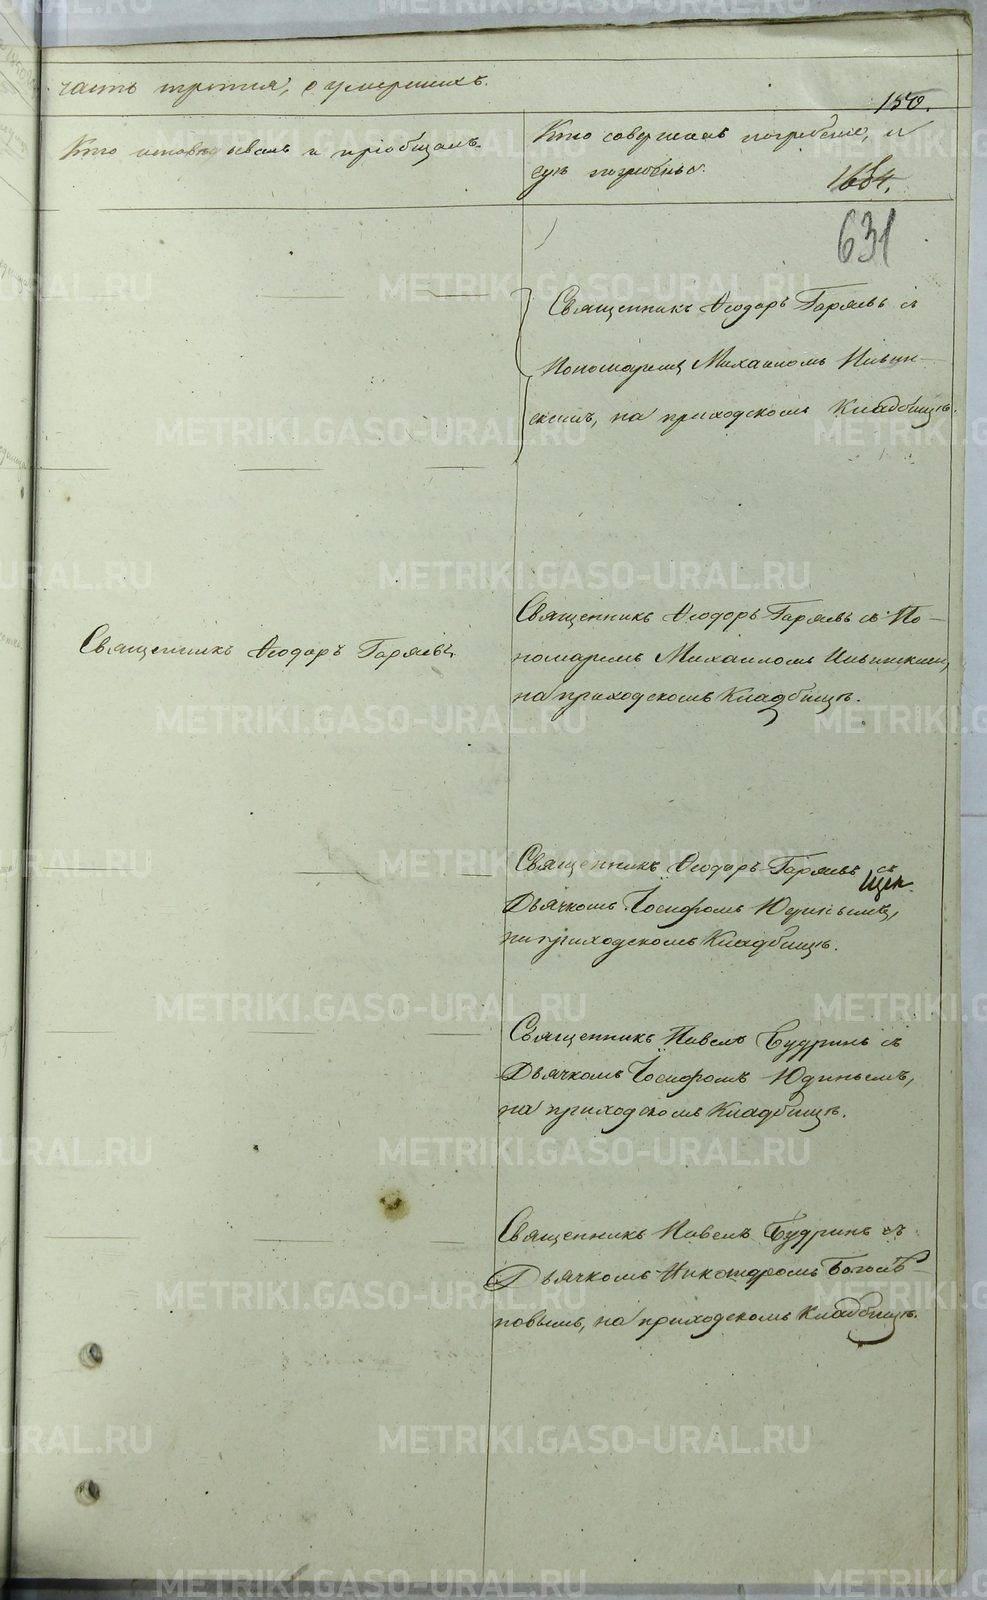 часть третья, о умершихъ.
150.
Кто исповѣдывалъ и пріобщалъ.
Кто совершалъ погребеніе, и
гдѣ погребены.
631
Священникъ Ѳеодоръ Гаряевъ съ
Пономаремъ Михаиломъ Ильин-
скимъ, на приходскомъ Кладбищѣ.
Священникъ Ѳеодоръ Гаряевъ.
Священникъ Ѳеодоръ Гаряевъ съ По-
номаремъ Михаиломъ Ильинскимъ,
на приходскомъ Кладбищѣ.
Священникъ Ѳеодоръ Гаряевъ съ
Дьячкомъ Іосифомъ Юдинымъ,
на приходскомъ Кладбищѣ.
Священникъ Павелъ Будринъ съ
Дьячкомъ Іосифомъ Юдинымъ,
на приходскомъ Кладбищѣ.
Священникъ Павелъ Будринъ съ
Дьячкомъ Никандромъ Боголѣ-
повымъ, на приходскомъ Кладбищѣ.
METRIKI.GASO-URAL.RU